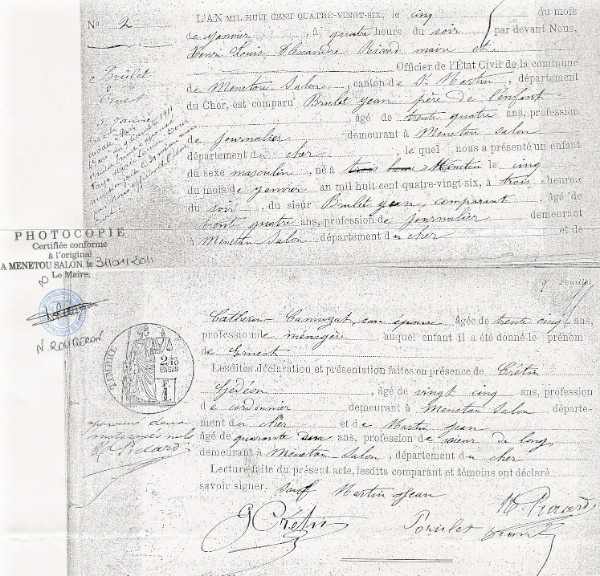 No 2
L'AN MIL HUIT CENT QUATRE-VINGT-SIX, le cinq du mois
de janvier, à quatre heure du soir par devant Nous,
Henri Louis Alexandre Picard maire et
Officier de l'État Civil de la commune
de Menetou Salon, canton de St Martin, département
du Cher, est comparu Brulet Jean père de l'enfant
âgé de trente quatre ans, profession
de journalier demeurant à Menetou Salon
département du cher, lequel nous a présenté un enfant
du sexe masculin, né à Menetou le cinq
du mois de janvier an mil huit cent quatre-vingt-six, à trois heure
du soir, du sieur Brulet Jean, comparant, âgé de
trente quatre ans, profession de journalier demeurant
à Menetou Salon département du cher et de
Brulet
Ernest
5 janvier
PHOTOCOPIE
Certifiée conforme
à l'original
A MENETOU SALON, le 31/01/2011
P/ Le Maire,
N. ROUGERON
Feuillet
Catherine Camuzat, son épouse âgée de trente cinq ans,
profession de ménagère auquel enfant il a été donné le prénom
de Ernest
Lesdites déclaration et présentation faites en présence de Crétin
Gédéon, âgé de vingt cinq ans, profession
de cordonnier demeurant à Menetou Salon départe-
ment du cher et de Martin Jean
âgé de quarante ans, profession de scieur de long
demeurant à Menetou Salon, département du cher
Lecture faite du présent acte, lesdits comparant et témoins ont déclaré
savoir signer, sauf Martin Jean
G Crétin
Brulet Jean
H. Picard
DIMENSIONS
approuvé deux
mots rayés nuls
H. Picard